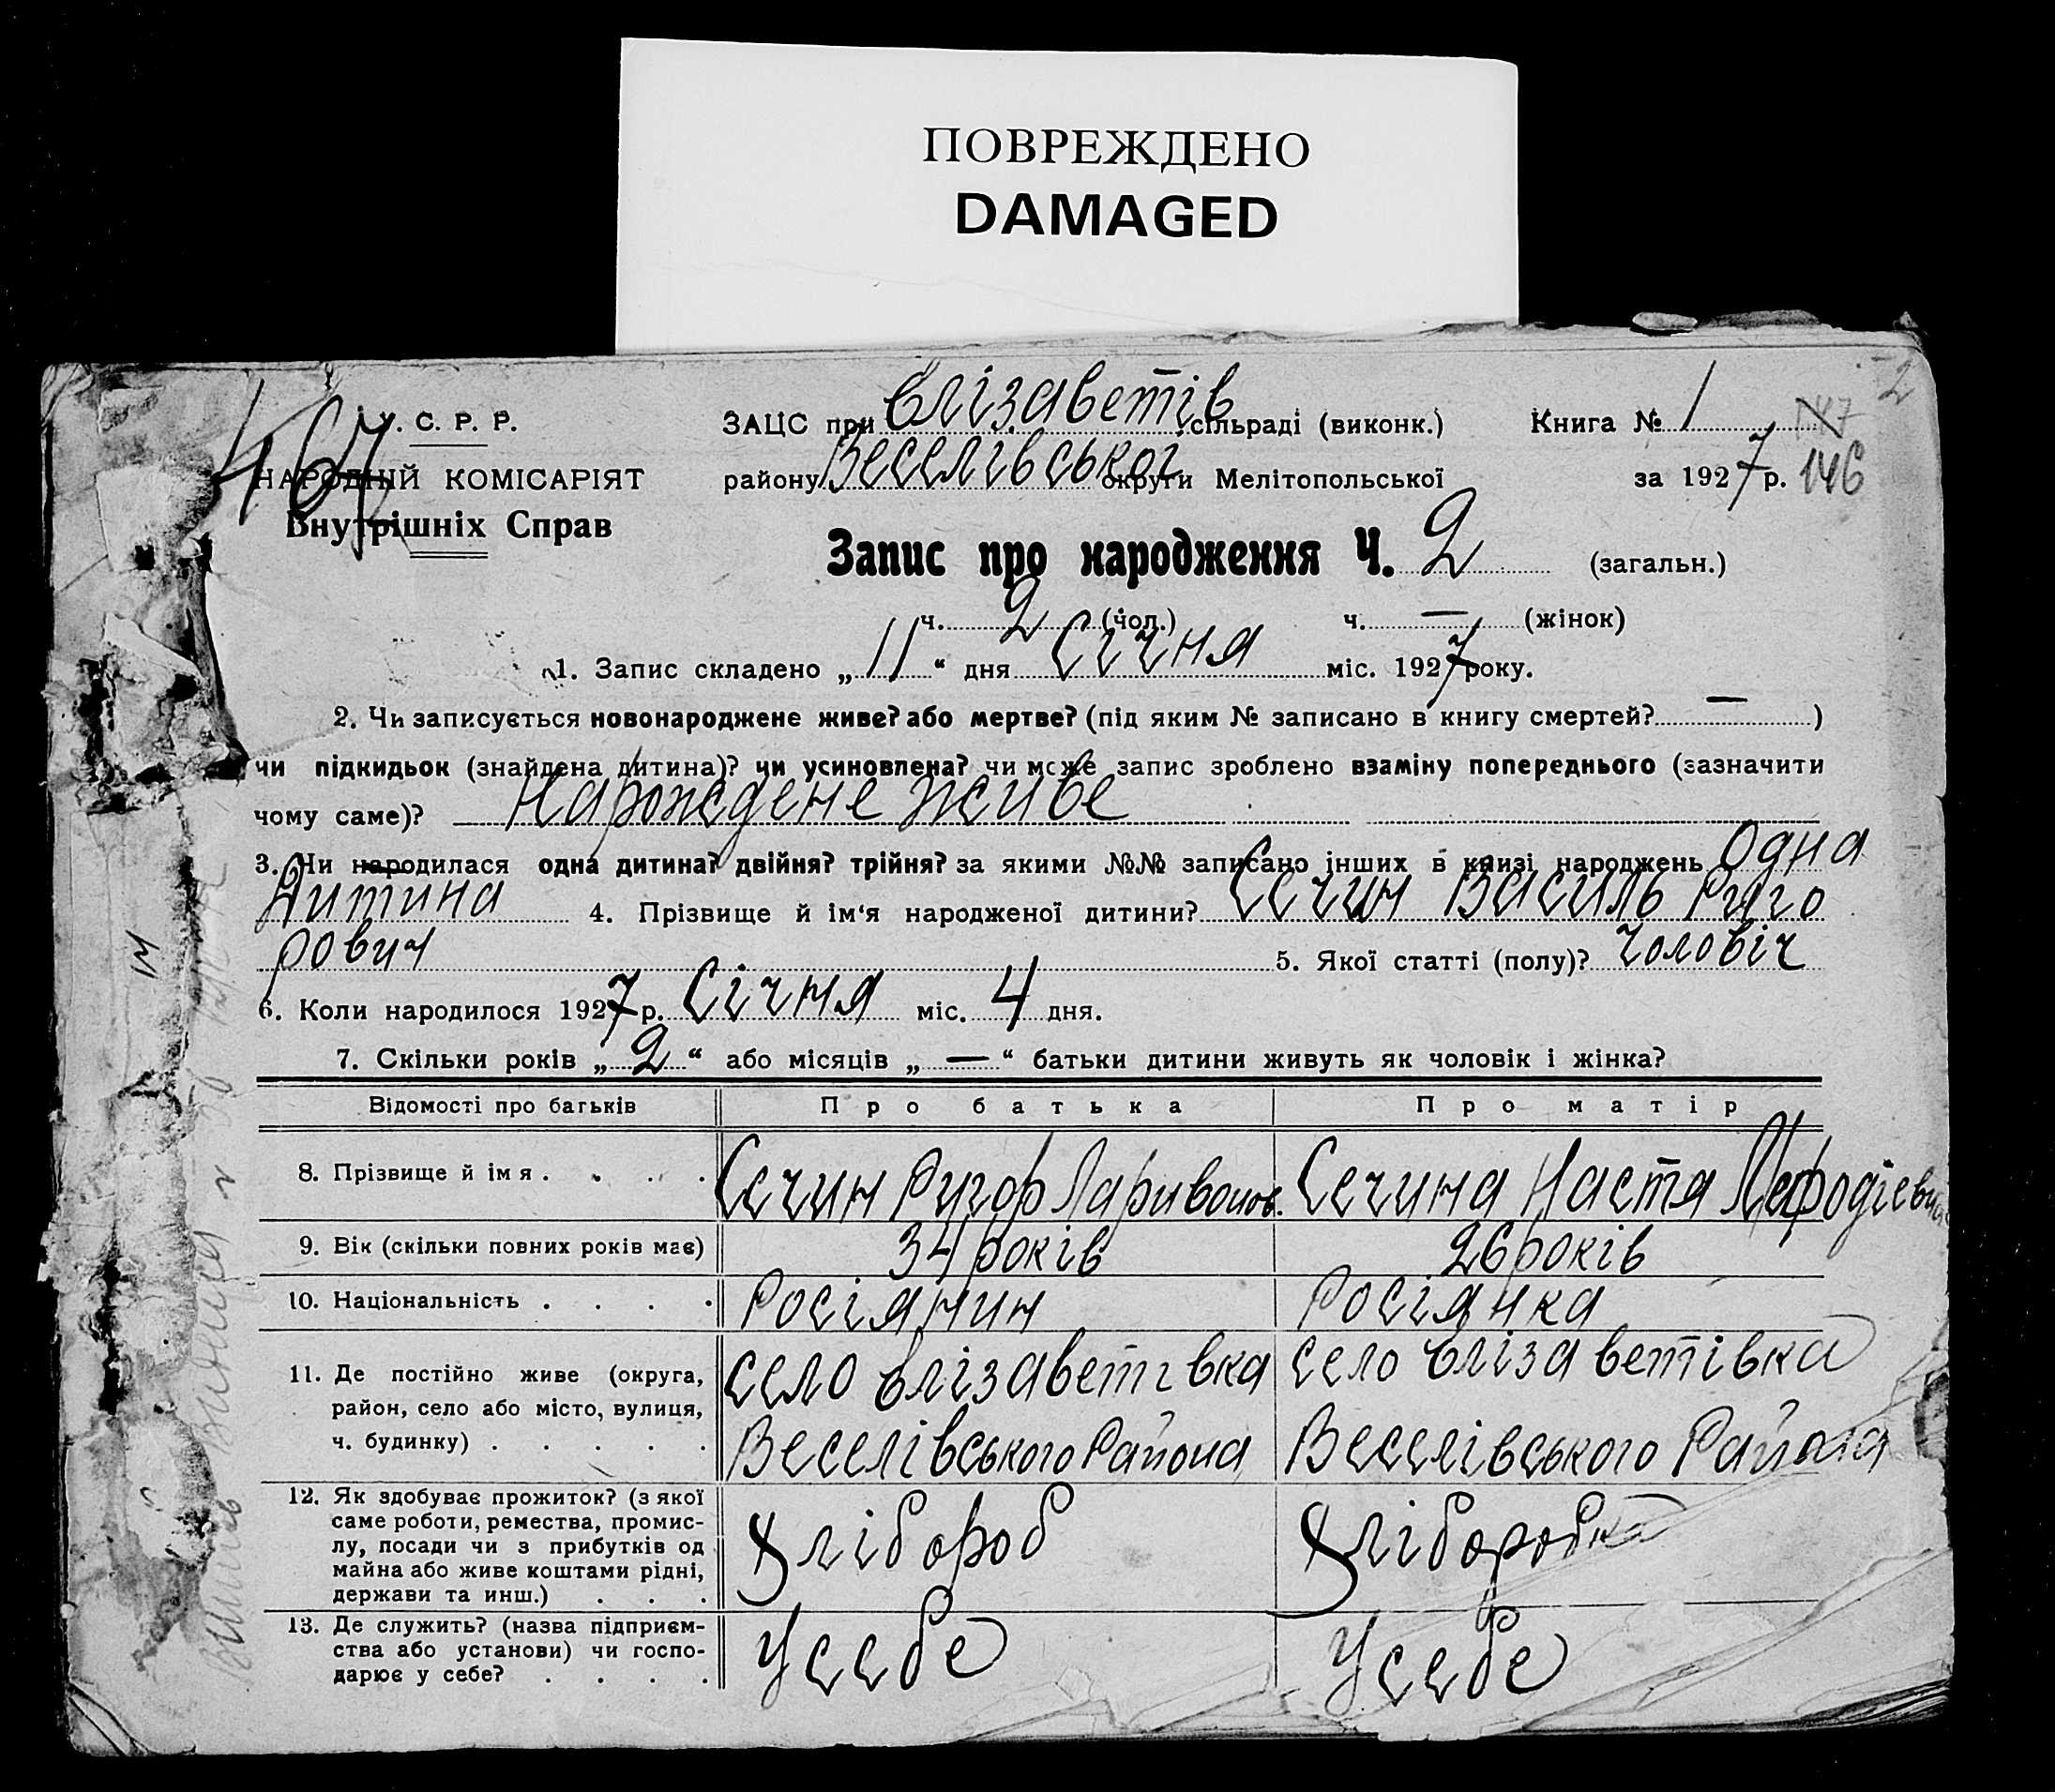 ПОВРЕЖДЕНО
DAMAGED
2
У. С. Р. Р.
ЗАЦС при Єлізаветів сільраді (виконк.)
Книга № 1
147
467
НАРОДНІЙ КОМІСАРІЯТ
району Веселівської округи Мелітопольської
за 1927 р.
146
Внутрішніх Справ
Запис про народження Ч. 2 (загальн.)
ч. 2 (чол.) ч. — (жінок)
1. Запис складено „ 11 “ дня Січня міс. 1927 року.
2. Чи записується новонароджене живе? або мертве? (під яким № записано в книгу смертей? — )
чи підкидьок (знайдена дитина)? чи усиновлена? чи може запис зроблено взаміну попереднього (зазначити
чому саме)? Нарождене живе
3. Чи народилася одна дитина? двійня? трійня? за якими №№ записано інших в книзі народжень Одна
Дитина 4. Прізвище й ім‘я народженої дитини? Сечин Василь Риго
рович 5. Якої статті (полу)? чоловіч
6. Коли народилося 1927 р. Січня міс. 4 дня.
7. Скільки років „ 2 “ або місяців „ — “ батьки дитини живуть як чоловік і жінка?
Відомості про батьків Про батька Про матір
8. Прізвище й ім я . . . . Сечин Ригор Ларивонов. Сечина Настя
9. Вік (скільки повних років має) 34 років 26 років
10. Національність . . . . Росіянин Росіянка
11. Де постійно живе (округа, село Єлізаветівка село Єлізаветівка
район, село або місто, вулиця,
ч. будинку) . . . . . Веселівського Района Веселівського Района
12. Як здобуває прожиток? (з якої
саме роботи, ремества, промис-
лу, посади чи з прибутків од Хлібороб Хлiборобка
майна або живе коштами рідні,
держави та инш.) . . .
13. Де служить? (назва підприєм-
ства або установи) чи госпо- У себе У себе
дарює у себе? . . . .